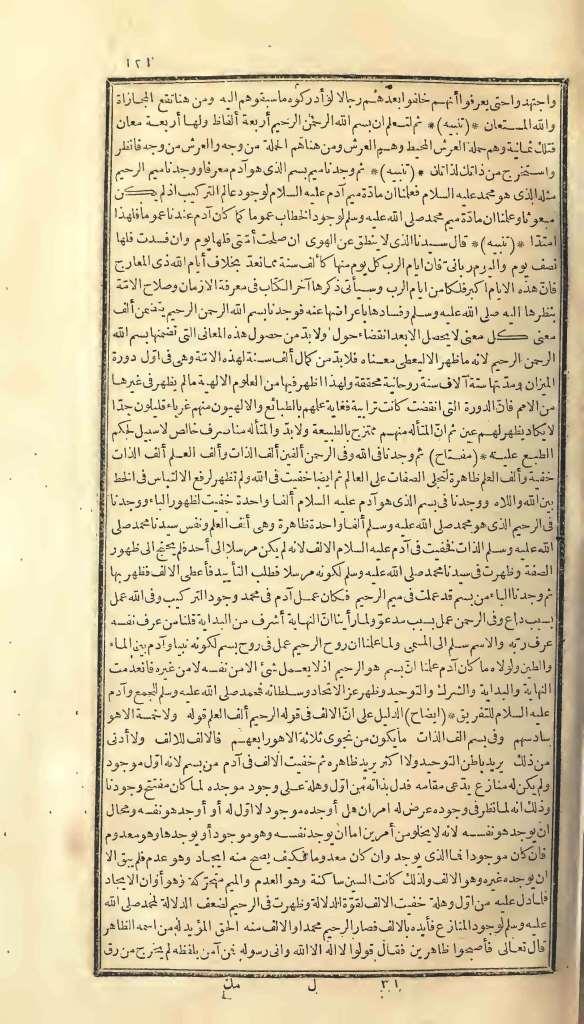 ١٢١
واجتهدوا حتى يعرفوا أنهم خلفوا بعدهم رجالا لو أدركوه ما سبقوهم اليه ومن هنا تقع المجازاة
والله المستعان * (تنبيه) * ثم لتعلم ان بسم الله الرحمن الرحيم أربعة ألفاظ ولها أربعة معان
فتلك ثمانية وهم حملة العرش المحيط وهم العرش ومن هنا هم الحملة من وجه والعرش من وجه فانظر
واستخرج من ذاتك لذاتك * (تنبيه) * ثم وجدنا ميم بسم الذى هو آدم معرقا ووجدنا ميم الرحيم
مثله الذى هو محمد عليه السلام فعلمنا ان مادّة ميم آدم عليه السلام لوجود عالم التركيب اذ لم يكن
مبعوثا وعلمنا ان مادّة ميم محمد صلى الله عليه وسلم لوجود الخطاب عموما كما كان آدم عندنا عموما فلهذا
امتدّا * (تنبيه) * قال سيدنا الذى لا ينطق عن الهوى ان صلحت أمّتى فلها يوم وان فسدت فلها
نصف يوم واليوم ربانىّ فان ايام الرب كل يوم منها كألف سنة مما نعدّ بخلاف أيام الله ذى المعارج
فانّ هذه الايام اكبر فلكا من ايام الرب وسيأتى ذكرها آخر الكتاب فى معرفة الازمان وصلاح الامّة
بنظرها اليه صلى الله عليه وسلم وفسادها باعراضها عنه فوجدنا بسم الله الرحمن الرحيم يتضمن ألف
معنى كل معنى لا يحصل الا بعد انقضاء حول ولا بدّ من حصول هذه المعانى التى تضمنها بسم الله
الرحمن الرحيم لانه ما ظهر الا ليعطى معناه فلا بدّ من كمال ألف سنة لهذه الامّة وهى فى اوّل دورة
الميزان ومدّتها ستة آلاف سنة روحانية محققة ولهذا اظهر فيها من العلوم الالهية ما لم يظهر فى غيرها
من الامم فانّ الدورة التى انقضت كانت ترابية فغاية علمهم بالطبائع والالهيون منهم غرباء قليلون جدّا
لا يكاد يظهر لهم عين ثم انّ المتأله منهم ممتزج بالطبيعة ولا بدّ والمتأله منا صرف خالص لا سبيل لحكم
الطبع عليه * (مفتاح) ثم وجدنا فى الله وفى الرحمن ألفين ألف الذات وألف العلم ألف الذات
خفية وألف العلم ظاهرة لتجلى الصفات على العالم ثم ايضا خفيت فى الله ولم تظهر لرفع الالتباس فى الخط
بين الله واللاه ووجدنا فى بسم الذى هو آدم عليه السلام ألفا واحدة خفيت لظهور الباء ووجدنا
فى الرحيم الذى هو محمد صلى الله عليه وسلم ألفا واحدة ظاهرة وهى ألف العلم ونفس سيدنا محمد صلى
الله عليه وسلم الذات فخفيت فى آدم عليه السلام الالف لانه لم يكن مرسلا الى أحد فلم يحتج الى ظهور
الصفة وظهرت فى سيدنا محمد صلى الله عليه وسلم لكونه مرسلا فطلب التأييد فأعطى الالف فظهر بها
ثم وجدنا الباء من بسم قد عملت فى ميم الرحيم فكان عمل آدم فى محمد وجود التركيب وفى الله عمل
بسبب داع وفى الرحمن عمل بسبب مدعوّ ولما رأينا انّ النهاية أشرف من البداية قلنا من عرف نفسه
عرف ربه والاسم سلم الى المسمى ولما علمنا ان روح الرحيم عمل فى روح بسم لكونه نبيا وآدم بين الماء
والطين ولولاه ما كان آدم علمنا انّ بسم هو الرحيم اذ لا يعمل شئ الا من نفسه لا من غيره فانعدمت
النهاية والبداية والشرك والتوحيد وظهر عز الاتحاد وسلطانه فمحمد صلى الله عليه وسلم للجمع وآدم
عليه السلام للتفريق * (ايضاح) الدليل على انّ الالف فى قوله الرحيم ألف العلم قوله ولا خمسة الا هو
سادسهم وفى بسم ألف الذات ما يكون من نجوى ثلاثة الا هو رابعهم فالالف للالف ولا أدنى
من ذلك يريد باطن التوحيد ولا اكثر يريد ظاهره ثم خفيت الالف فى آدم من بسم لانه اوّل موجود
ولم يكن له منازع يدعى مقامه فدل بذاته من اوّل وهلة على وجود موجده لما كان مفتتح وجودنا
وذلك انه لما نظر فى وجوده عرض له امران هل أوجده موجود لا اوّل له أو أوجد هو نفسه ومحال
ان يوجد هو نفسه لانه لا يخلو من أمرين اما ان يوجد نفسه وهو موجود أو يوجدها وهو معدوم
فان كان موجودا فما الذى يوجد وان كان معدوما فكيف يصح منه ايجاد وهو عدم فلم يبق الا
ان يوجده غيره وهو الالف ولذلك كانت السين ساكنة وهو العدم والميم متحرّكة وهو أوان الايجاد
فلما دل عليه من اوّل وهلة خفيت الالف لقوّة الدلالة وظهرت فى الرحيم لضعف الدلالة لمحمد صلى الله
عليه وسلم لوجود المنازع فأيده بالالف فصار الرحيم محمدا والالف منه الحق المؤيد له من اسمه الظاهر
قال تعالى فأصبحوا ظاهرين فقال قولوا لا اله الا الله وانى رسوله فمن آمن بلفظه لم يخرج من رق
٣١ ل مك